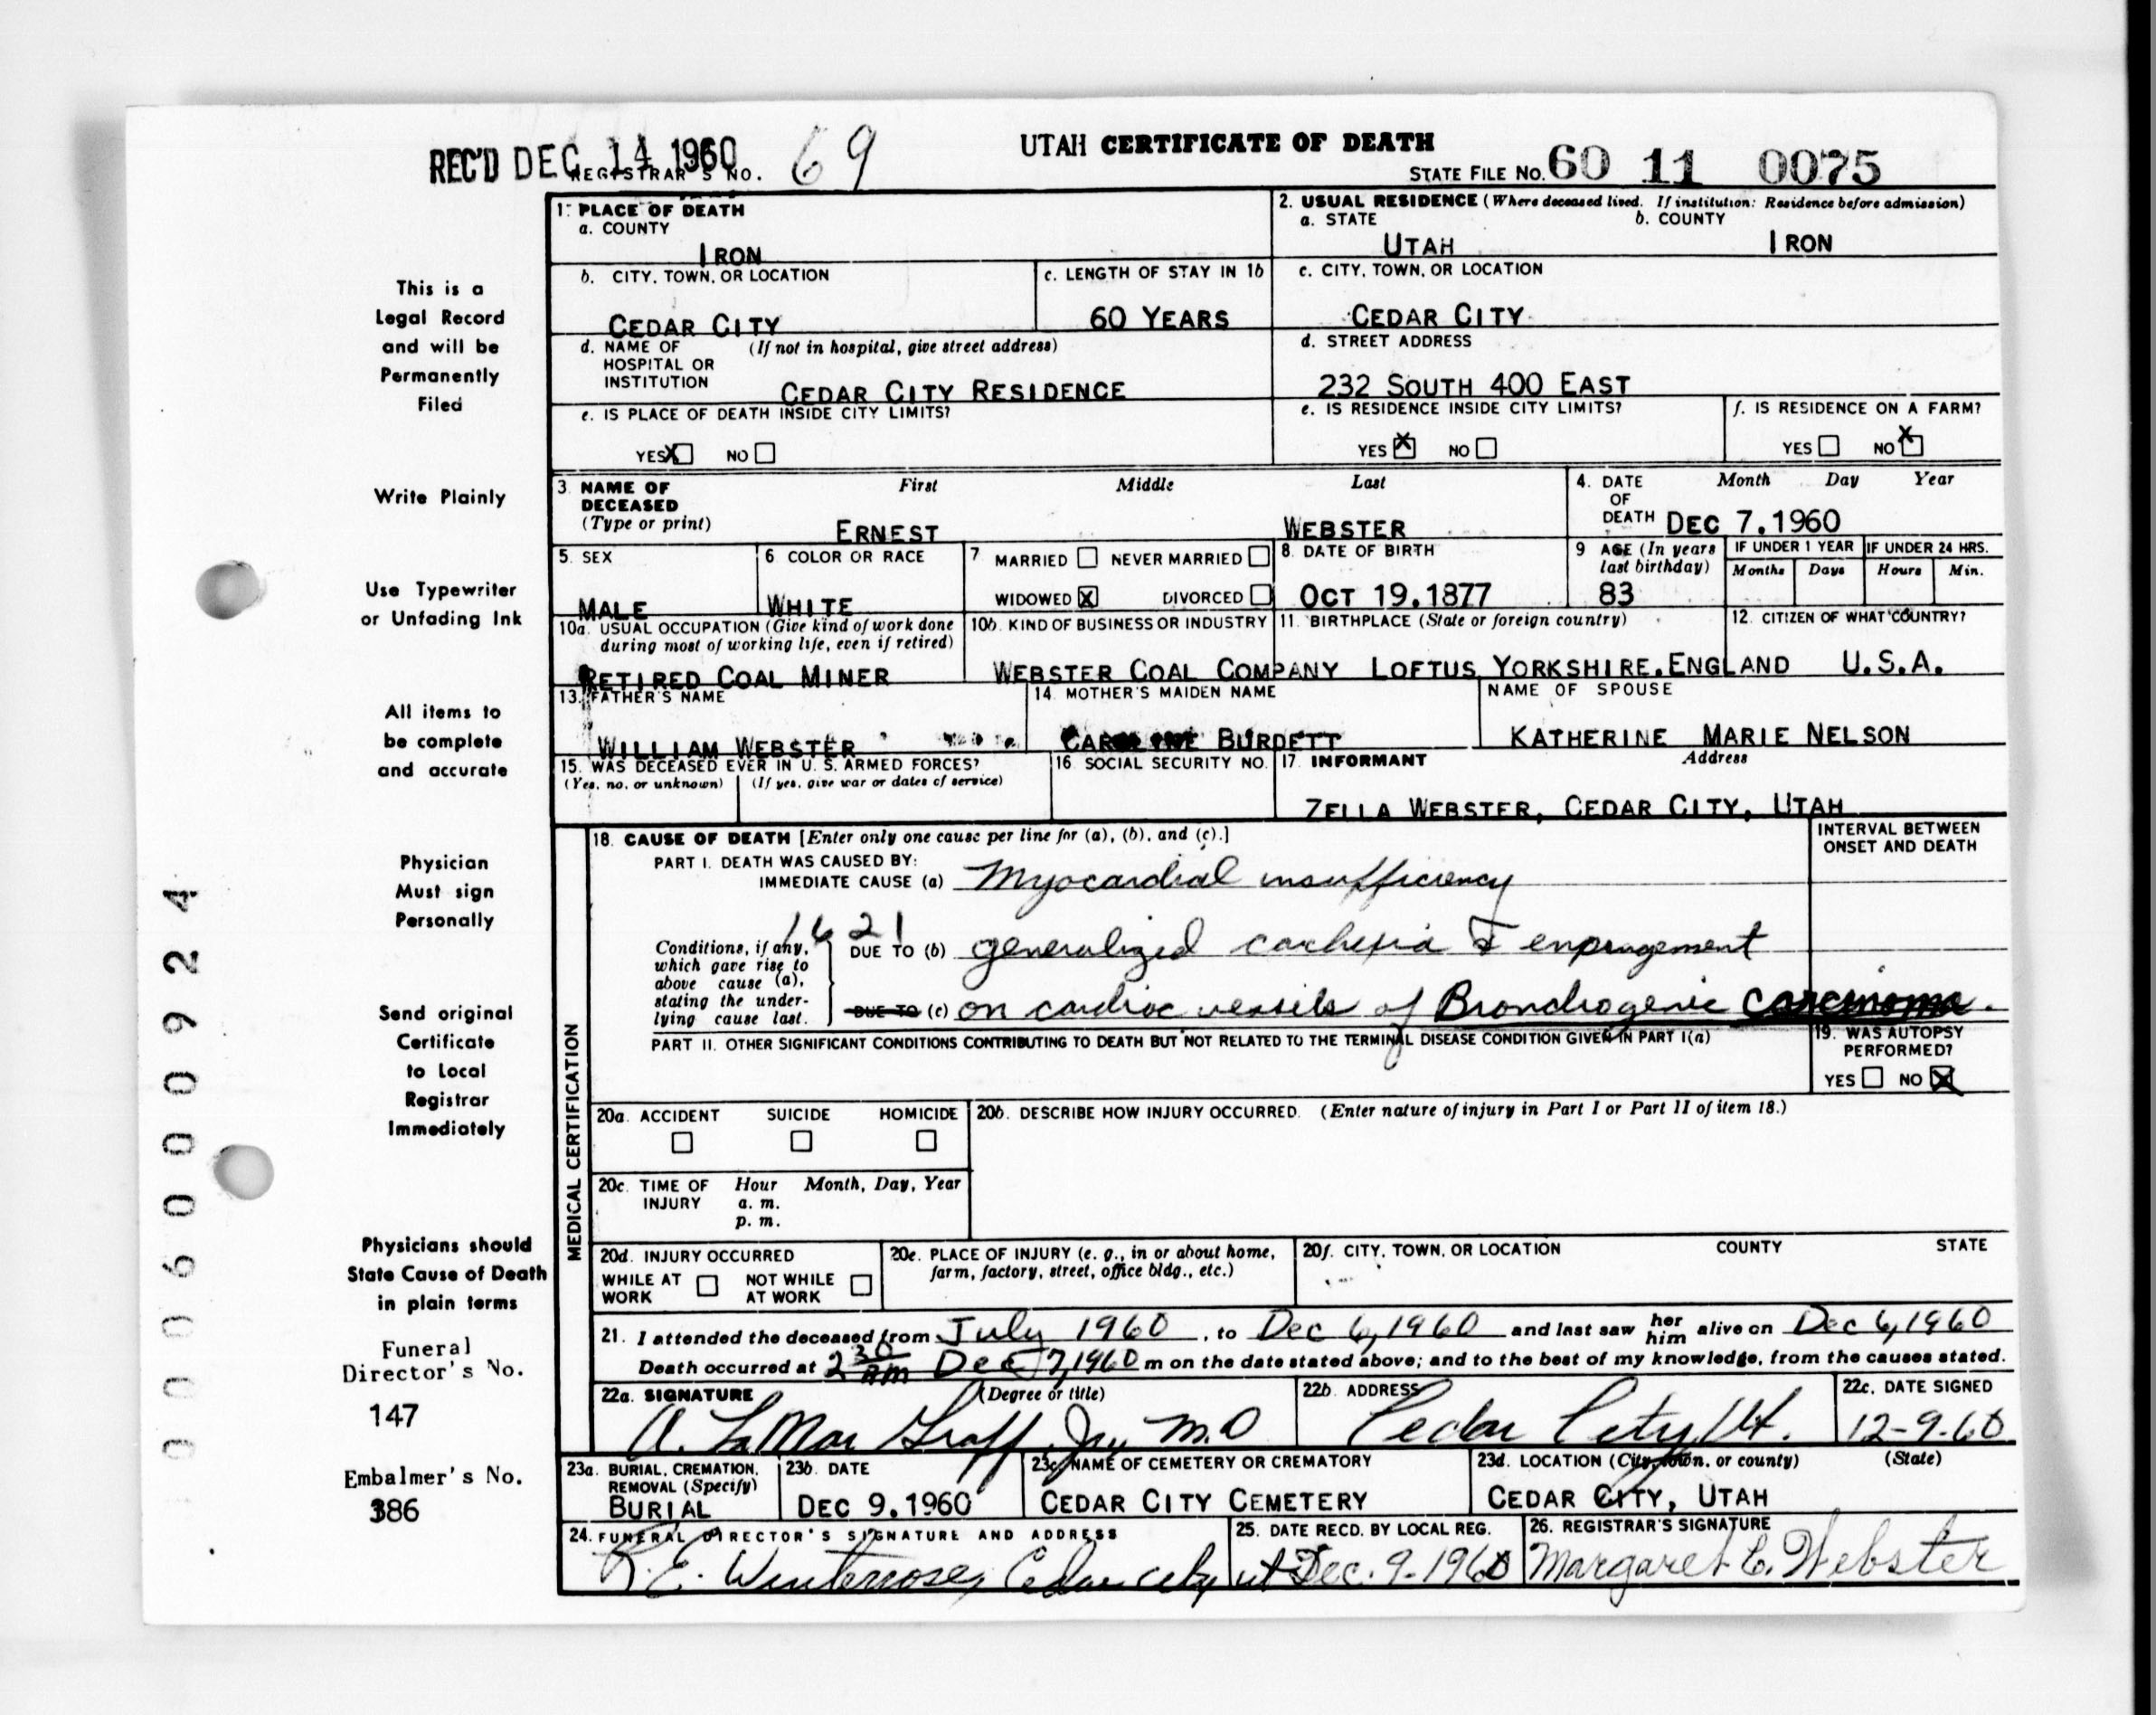 REC'D DEC 14 1960
REGISTRAR'S NO. 69
UTAH CERTIFICATE OF DEATH
STATE FILE NO. 60 11 0075
This is a
Legal Record
and will be
Permanently
Filed
Write Plainly
Use Typewriter
or Unfading Ink
All items to
be complete
and accurate
Physician
Must sign
Personally
Send original
Certificate
to Local
Registrar
Immediately
Physicians should
State Cause of Death
in plain terms
Funeral
Director's No.
147
Embalmer's No.
386
0006000924
1. PLACE OF DEATH
a. COUNTY
IRON
2. USUAL RESIDENCE (Where deceased lived. If institution: Residence before admission)
a. STATE b. COUNTY
UTAH IRON
b. CITY, TOWN, OR LOCATION
CEDAR CITY
c. LENGTH OF STAY IN 1b
60 YEARS
c. CITY, TOWN, OR LOCATION
CEDAR CITY
d. NAME OF (If not in hospital, give street address)
HOSPITAL OR
INSTITUTION CEDAR CITY RESIDENCE
d. STREET ADDRESS
232 SOUTH 400 EAST
e. IS PLACE OF DEATH INSIDE CITY LIMITS?
YES X NO
e. IS RESIDENCE INSIDE CITY LIMITS?
YES X NO
f. IS RESIDENCE ON A FARM?
YES NO X
3. NAME OF First Middle Last
DECEASED
(Type or print)
ERNEST WEBSTER
4. DATE Month Day Year
OF
DEATH DEC 7.1960
5. SEX
MALE
6 COLOR OR RACE
WHITE
7 MARRIED NEVER MARRIED
WIDOWED X DIVORCED
8. DATE OF BIRTH
OCT 19.1877
9 AGE (In years
last birthday)
83
IF UNDER 1 YEAR IF UNDER 24 HRS.
Months Days Hours Min.
10a. USUAL OCCUPATION (Give kind of work done
during most of working life, even if retired)
RETIRED COAL MINER
10b. KIND OF BUSINESS OR INDUSTRY
WEBSTER COAL COMPANY
11. BIRTHPLACE (State or foreign country)
LOFTUS YORKSHIRE.ENGLAND
12. CITIZEN OF WHAT COUNTRY?
U.S.A.
13. FATHER'S NAME
WILLIAM WEBSTER
14. MOTHER'S MAIDEN NAME
CAROLINE BURDETT
NAME OF SPOUSE
KATHERINE MARIE NELSON
15. WAS DECEASED EVER IN U. S. ARMED FORCES?
(Yes, no, or unknown) (If yes, give war or dates of service)
16. SOCIAL SECURITY NO.
17. INFORMANT Address
ZELLA WEBSTER, CEDAR CITY, UTAH
MEDICAL CERTIFICATION
18. CAUSE OF DEATH [Enter only one cause per line for (a), (b), and (c).]
INTERVAL BETWEEN
ONSET AND DEATH
PART I. DEATH WAS CAUSED BY:
IMMEDIATE CAUSE (a) Myocardial insufficiency
1621
Conditions, if any,
which gave rise to
above cause (a),
stating the under-
lying cause last.
DUE TO (b) generalized cachexia &
DUE TO (c) on cardiac vessels of Bronchogenic Carcinoma.
PART II. OTHER SIGNIFICANT CONDITIONS CONTRIBUTING TO DEATH BUT NOT RELATED TO THE TERMINAL DISEASE CONDITION GIVEN IN PART I(a)
19. WAS AUTOPSY
PERFORMED?
YES NO X
20a. ACCIDENT SUICIDE HOMICIDE
20b. DESCRIBE HOW INJURY OCCURRED. (Enter nature of injury in Part I or Part II of item 18.)
20c. TIME OF Hour Month, Day, Year
INJURY a. m.
p. m.
20d. INJURY OCCURRED
WHILE AT NOT WHILE
WORK AT WORK
20e. PLACE OF INJURY (e. g., in or about home,
farm, factory, street, office bldg., etc.)
20f. CITY, TOWN, OR LOCATION COUNTY STATE
21. I attended the deceased from July 1960, to Dec 6, 1960 and last saw her him alive on Dec 6, 1960
Death occurred at 2 30 AM Dec 7, 1960 m on the date stated above; and to the best of my knowledge, from the causes stated.
22a. SIGNATURE (Degree or title)
A. LaMar Graff Jr., M.D
22b. ADDRESS
Cedar City, Ut.
22c. DATE SIGNED
12-9-60
23a. BURIAL, CREMATION,
REMOVAL (Specify)
BURIAL
23b. DATE
DEC 9.1960
23c. NAME OF CEMETERY OR CREMATORY
CEDAR CITY CEMETERY
23d. LOCATION (City, town, or county) (State)
CEDAR CITY, UTAH
24. FUNERAL DIRECTOR'S SIGNATURE AND ADDRESS
R. E. Winterrose, Cedar City ut
25. DATE RECD. BY LOCAL REG.
Dec. 9-1960
26. REGISTRAR'S SIGNATURE
Margaret C. Webster